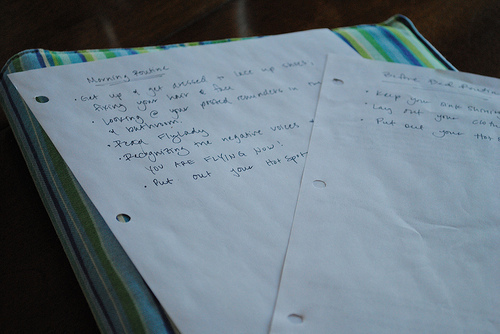 Morning Routine
• Get up & get dressed to lace up shoes,
fixing your hair & face
• Looking @ your posted reminders in the
& bathroom.
• Read FlyLady
• Recognizing the negative voices &
YOU ARE FLYING NOW!
• Put out your Hot Spot
Before Bed Routine
• Keep your sink shining
• Lay out your clothes
• Put out your Hot